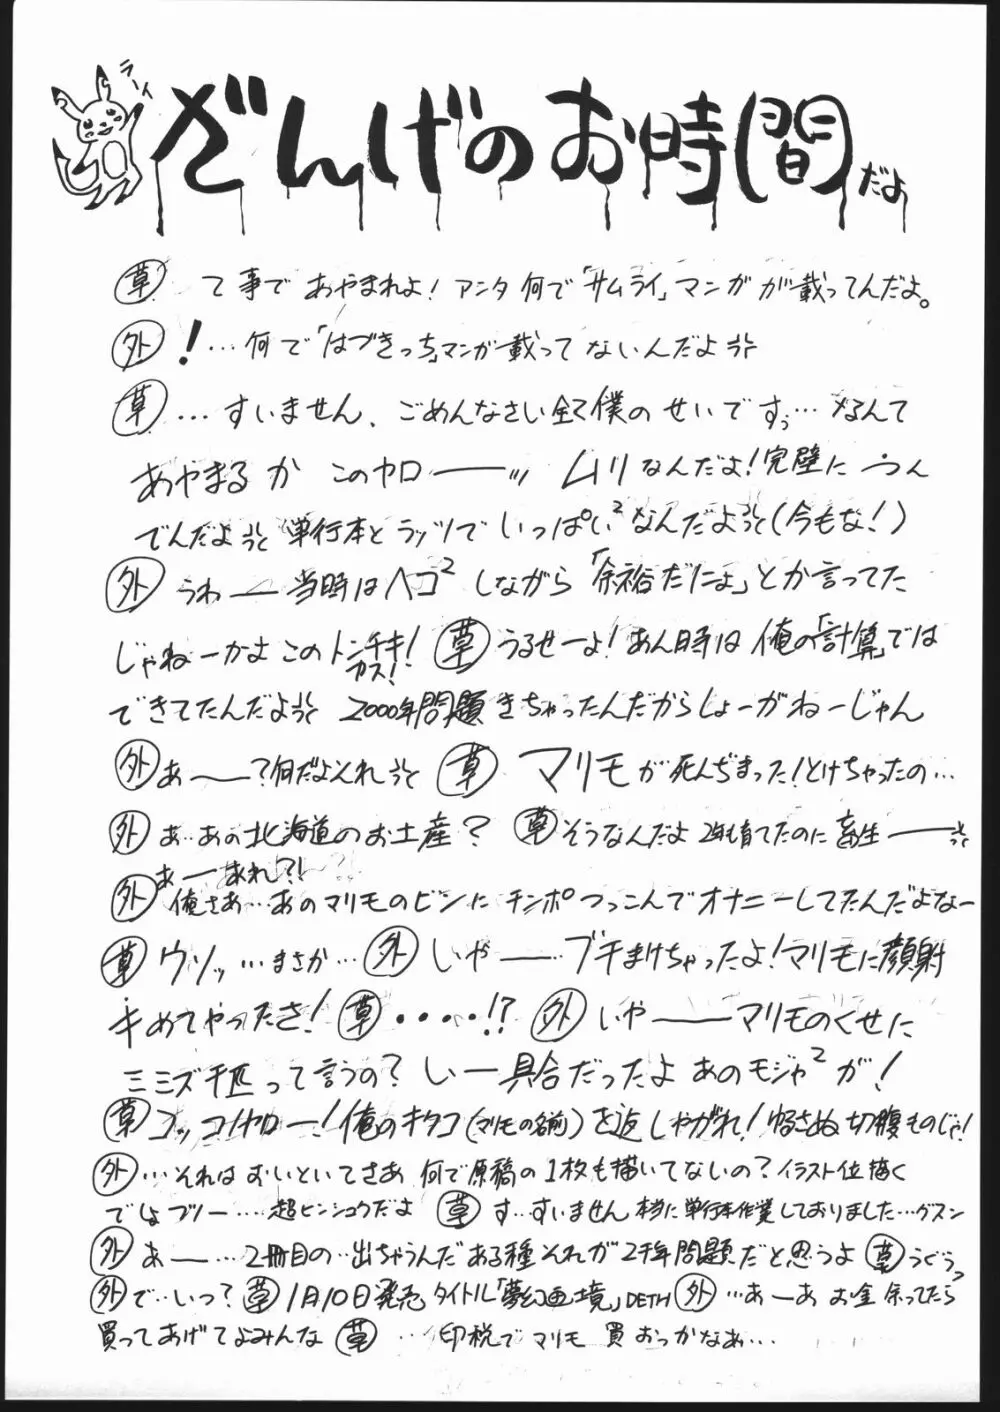 ラーィ
ざんげのお時間だよ
草 って事であやまれよ!アンタ何で「サムライ」マンガが載ってんだよ。
外 !…何で「はづきっち」マンガ載ってないんだよ
草 …すいません、ごめんなさい全て僕のせいですぅ…なんて
あやまるか このヤロ――ッッ ムリなんだよ!完璧に
でんだよ 単行本とラッツでいっぱい²なんだよ(今もな!)
外 うわ――当時はヘコ²しながら「余裕だにょ」とか言ってた
じゃねーかよこのトンチキカス! 草 うるせーよ!あん時は俺の「計算」では
できてたんだよ 2000年問題きちゃったんだからしょーがねーじゃん
外 あ――?何だよそれ 草 マリモが死んぢまった!とけちゃったの…
外 あ…あの北海道のお土産? 草 そうなんだよ 2年も育てたのに畜生――
あーあれ?!
外 俺さあ…あのマリモのビンにチンポつっこんでオナニーしてたんだよなー
草 ウソッ…まさか… 外 いや――ブチまけちゃったよ!マリモに顔射
キめてやったさ! 草 ・・・・!? 外 いや――マリモのくせに
ミミズ千匹って言うの?いー具合だったよあのモジャ²が!
草 コッコノヤロー!俺のキタコ(マリモの名前)を返しやがれ!ゆるさぬ切腹ものじゃ!
外 …それはおいといてさあ 何で原稿の1枚も描いてないの?イラスト位描く
でしょブツー…超ヒンシュクだよ 草 す…すいません 本当に単行本作業しておりました…グスン
外 あ――…2冊目の…出ちゃうんだ ある種それが2千年問題だと思うよ 草 うぐぅっ
外 で…いつ? 草 1月10日発売 タイトル「夢幻画境」DETH 外 …あーあ お金余ってたら
買ってあげてよみんな 草 …印税でマリモ買おっかなぁ…